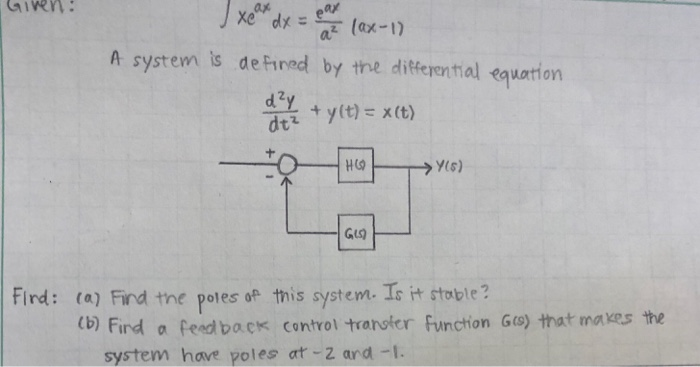 Given: ∫ xe^{ax} dx = e^{ax}/a² (ax-1)
A system is defined by the differential equation
d²y/dt² + y(t) = x(t)
+
H(s)
Y(s)
-
G(s)
Find: (a) Find the poles of this system. Is it stable?
(b) Find a feedback control transfer function G(s) that makes the
system have poles at -2 and -1.